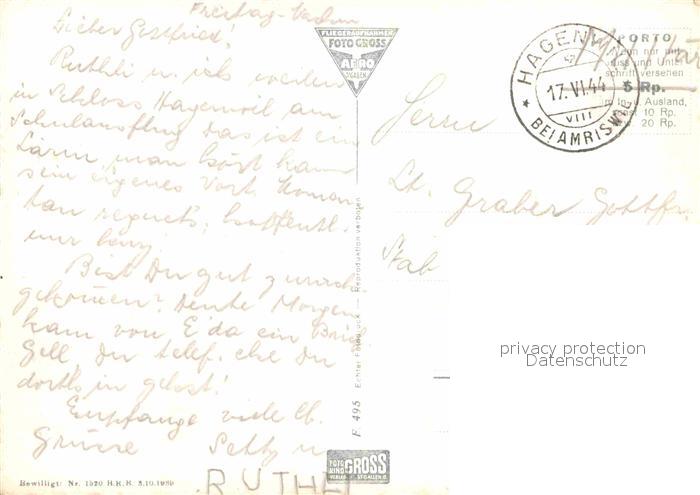 Freitag-
Lieber Gottfried!
Ruthli u ich weilen
in Schloss Hagenwil am
Schulausflug Das ist ein
Lärm, man hört kaum
sein eigenes Wort. Momen
tan regnets; hoffentl.
nur kurz.
Bist Du gut zurück
gekommen? Heute Morgen
kam von E'da ein Brief
Gell Du telef. ehe Du
dorthin gehst!
Empfange viele lb.
Grüsse Setty u
RUTHLI
FLIEGERAUFNAHMEN
FOTO GROSS
APRO
ST.GALLEN
HAGENWIL
17.VI.44
VIII
BEI AMRISWIL
PORTO
Wenn nur mit
Gruss und Unter-
schrift versehen
5 Rp.
Ausland,
10 Rp.
20 Rp.
Herrn
Lt. Graber Gottfr.
Stab
privacy protection
Datenschutz
F 495 Echter Fotodruck — Reproduktion verboten
FOTO GROSS
VERLAG ST.GALLEN
Bewilligt: Nr. 1520 B.R.B. 3.10.1939